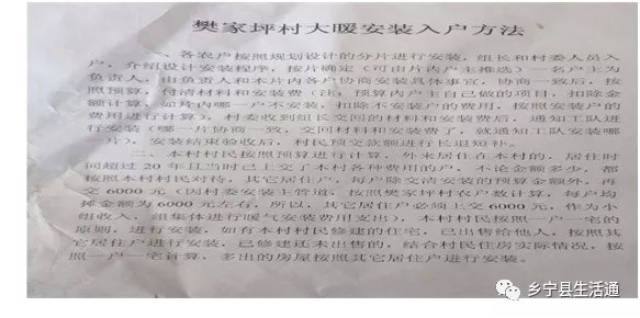 樊家坪村大暖安装入户方法
一、各农户按照规划设计的分片进行安装，组长和村委人员入
户，介绍设计安装程序，按片确定（可由片内户主推选）一名户主为
负责人，由负责人和本片内各户协商安装具体事宜，协商一致后，按
照预算，付清材料和安装费（注：预算内户主自己做的项目，扣除金
额计算，如片内哪一户不安装，扣除不安装户的费用，按照安装户的
费用进行计算），村委收到组长交回的材料和安装费后，通知工队进
行安装（哪一片协商一致，交回材料和安装费了，就通知工队安装哪
一片），安装结束验收后，村民预交款额进行长退短补。
二、本村村民按照预算进行计算，外来居住在本村的，居住时
间超过 20 年且当时已上交了本村各种费用的户，不论金额多少，都
按照本村村民对待，其它居住户，每户除交清安装的预算金额外，再
交 6000 元（因村委安装主管道，按照樊家坪村农户数计算，每户均
摊金额为 6000 元左右，所以，其它居住户必须上交 6000 元，作为小
组收入，组集体进行暖气安装费用支出），本村村民按照一户一宅的
原则，进行安装，如有本村村民修建的住宅，已出售给他人，按照其
它居住户进行安装，已修建还未出售的，结合村民住房实际情况，按
照一户一宅计算，多出的房屋按照其它居住户进行安装。
乡宁县生活通